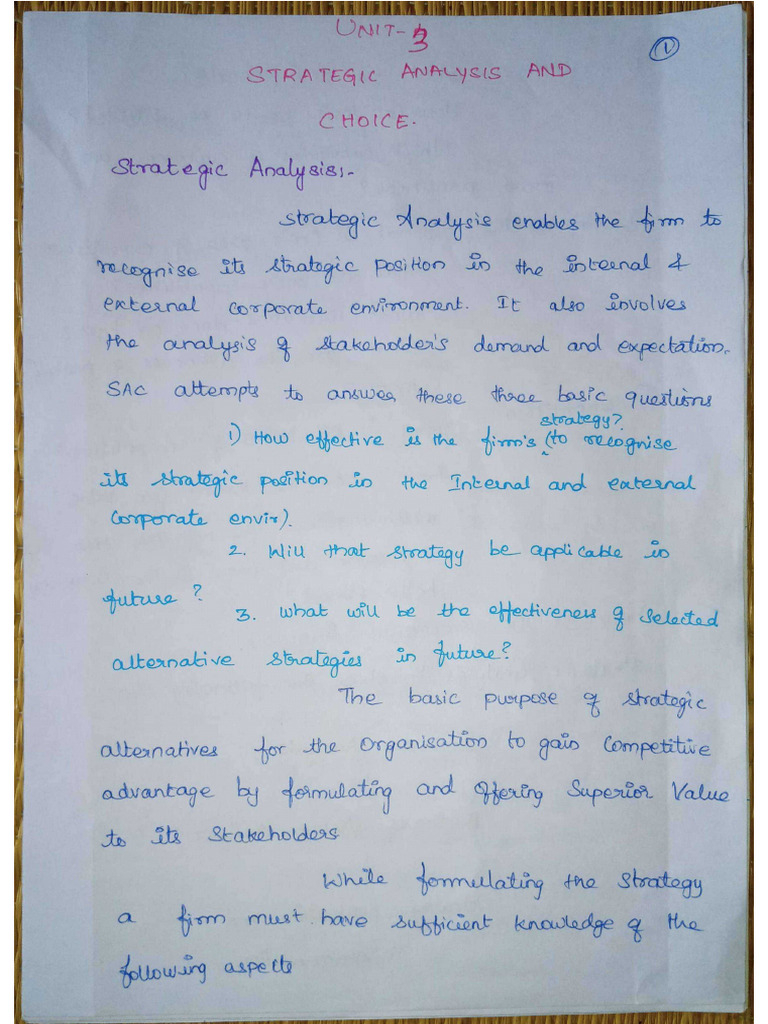 UNIT-3
1
STRATEGIC ANALYSIS AND
CHOICE.
Strategic Analysis:-
Strategic Analysis enables the firm to
recognise its strategic position in the internal &
external corporate environment. It also involves
the analysis of stakeholder's demand and expectation.
SAC attempts to answer these three basic questions
strategy?
1) How effective is the firm's (to recognise
its strategic position in the Internal and external
Corporate envir).
2. Will that strategy be applicable in
future?
3. What will be the effectiveness of selected
alternative strategies in future?
The basic purpose of strategic
alternatives for the Organisation to gain Competitive
advantage by formulating and Offering Superior Value
to its Stakeholders
While formulating the strategy
a firm must have sufficient knowledge of the
following aspects